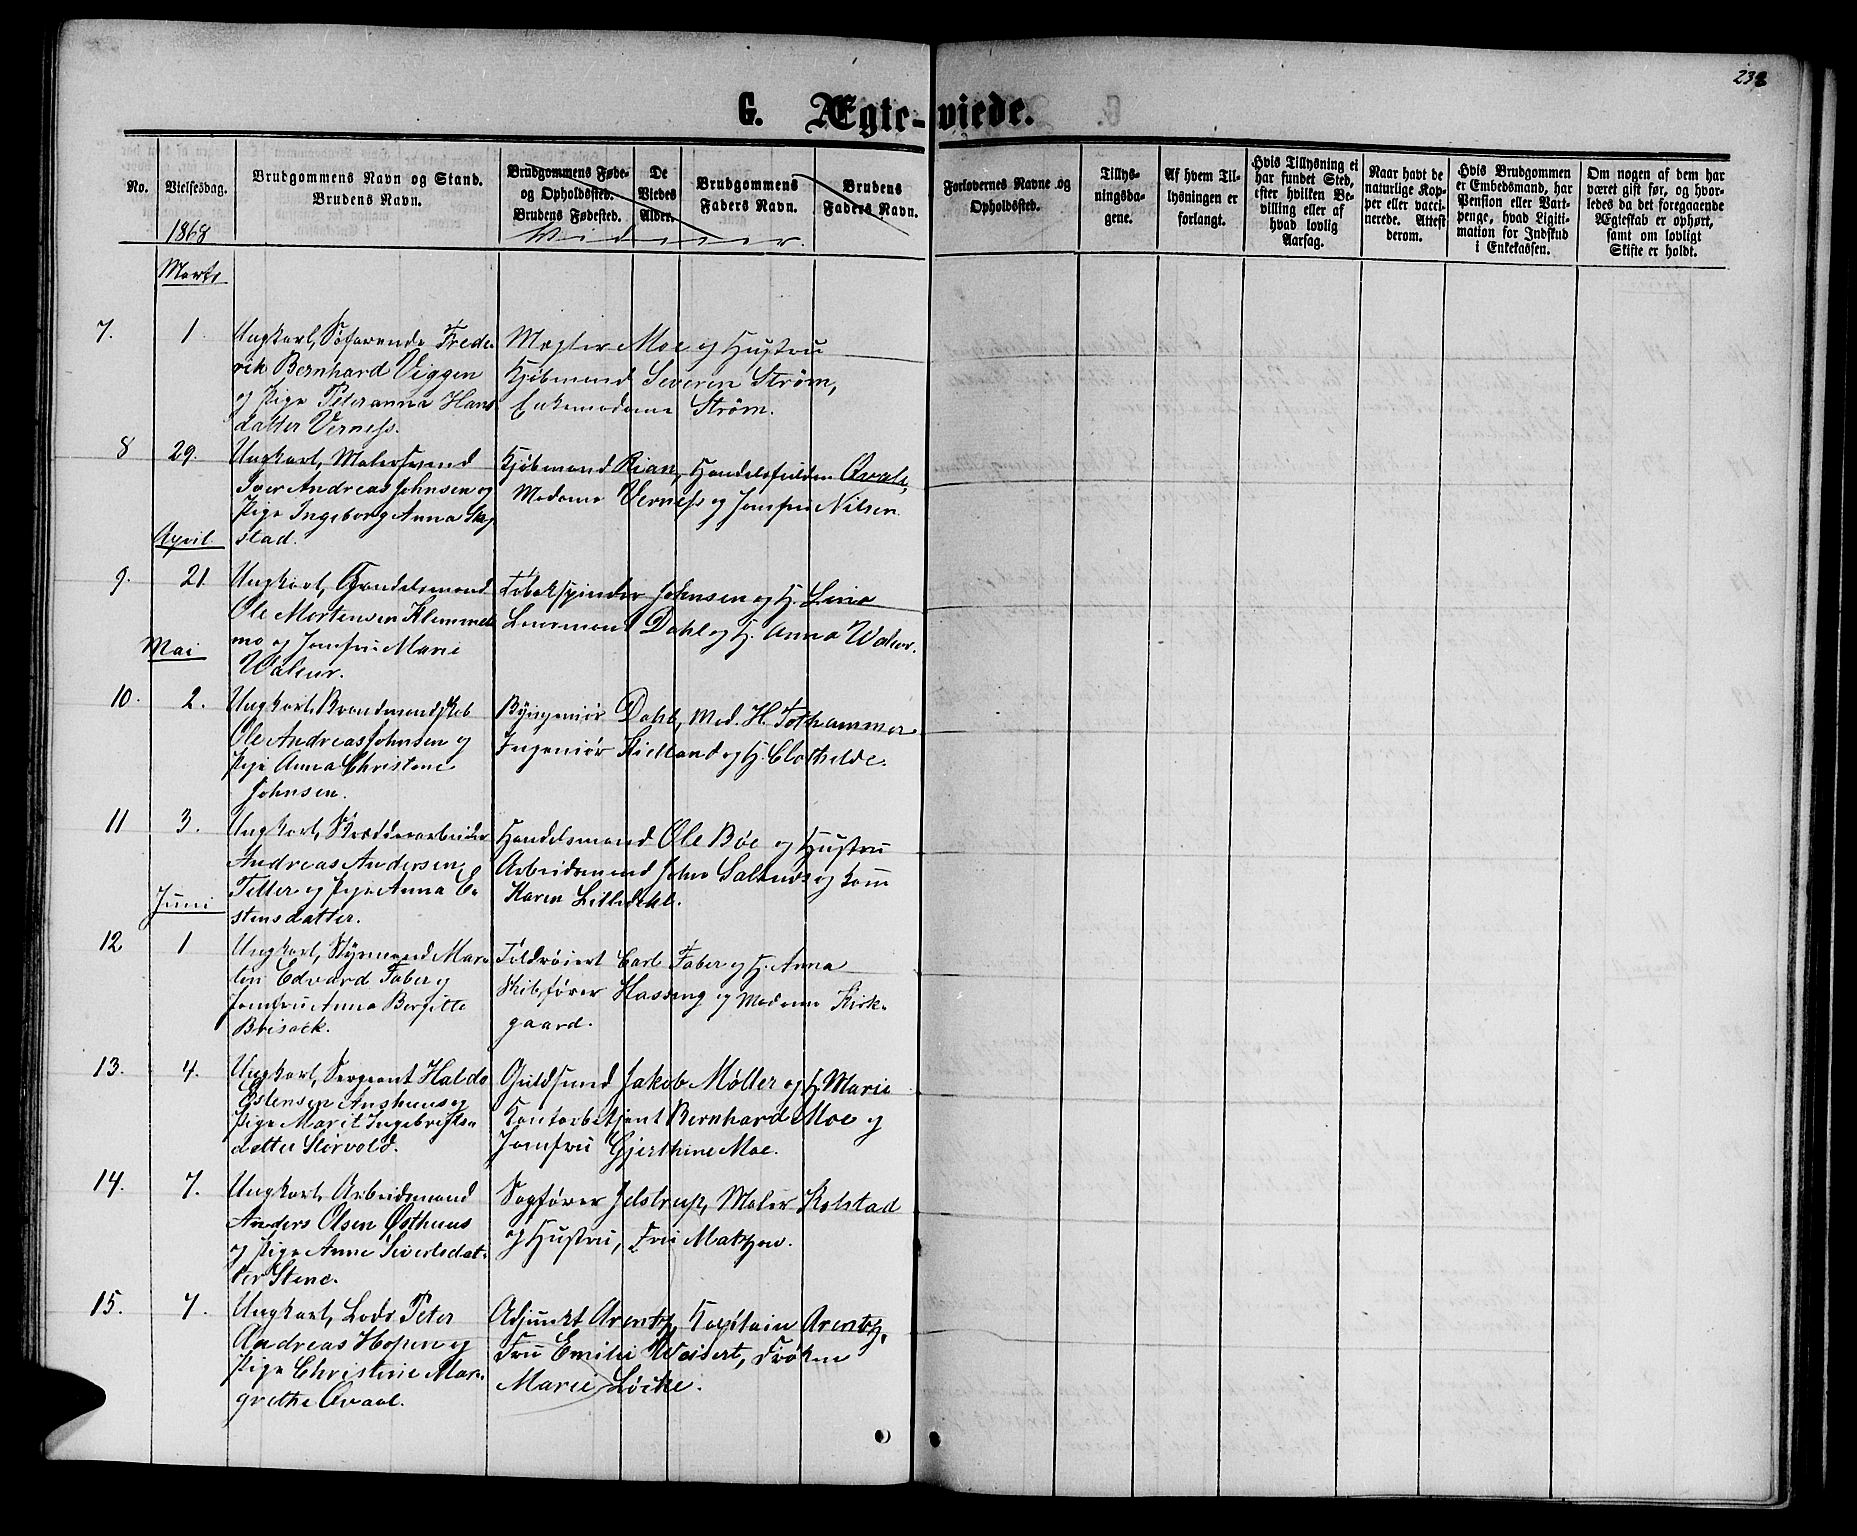 238
G. Ægte-viede.
No.
Vielsesdag.
Brudgommens Navn og Stand.
Brudens Navn.
Brudgommens Føde-
og Opholdssted.
Brudens Fødested.
De
Viedes
Alder.
Brudgommens
Faders Navn.
Brudens
Faders Navn.
Forlovernes Navne og
Opholdssted.
Tillys-
ningsda-
gene.
Af hvem Til-
lysningen er
forlangt.
Hvis Tillysning ei
har fundet Sted,
efter hvilken Be-
villing eller af
hvad lovlig
Aarsag.
Naar havt de
naturlige Kop-
per eller vacci-
nerede. Attest
derom.
Hvis Brudgommen
er Embedsmand, har
Pension eller Vart-
penge, hvad Ligiti-
mation for Indskud
i Enkekassen.
Om nogen af dem har
været gift før, og hvor-
ledes da det foregaaende
Ægteskab er ophørt,
samt om lovligt
Skifte er holdt.
1868
Vidner.
Marts
7. 1. Ungkarl, Søfarende Frede-
rik Bernhard Viggen
og Pige Peteranna Hans
datter Verness.
Mægler Moe og Hustru
Kjøbmand Severen Strøm,
Enkemadame Strøm.
8 29. Ungkarl, Malersvend
Iver Andreas Johnsen og
Pige Ingeborg Anna
stad.
Kjøbmand Rian, Handelsfuldm Qvale,
Madame Verness og Jomfru Nilsen.
April.
9. 21 Ungkarl, Handelsmand
Ole Mortensen Klemmets
mo og Jomfru Marie
Waleur.
Tobakspinder Johnsen og H. Lina
Leiermand Dahl og H. Anna Waleur.
Mai
10. 2. Ungkarl, Brandmandskab
Ole Andreas Johnsen og
Pige Anna Christene
Johnsen.
Byingeniør Dahl, Mad. H. Tothammer
Ingeniør Kielland og H. Clothilde.
11 3. Ungkarl, Skrædderarbeider
Andreas Andersen
Teller og Pige Anna E-
stensdatter.
Handelsmand Ole Bøe og Hustru
Arbeidsmand John og Kone
Karen Lilledahl.
Juni
12 1 Ungkarl, Styrmand Mar-
tin Edvard Faber og
Jomfru Anna Bergitte
Brisack.
Toldrøiert Carl Faber og H. Anna
Skibsfører Hassing og Madame Kirk-
gaard.
13. 4. Ungkarl, Sergeant Haldo
Estensen Aushuus og
Pige Marit Ingebrigts-
datter Størvold.
Guldsmed Jakob Møller og H. Marie
Kontorbetjent Bernhard Moe og
Jomfru Gjerthine Moe.
14. 7. Ungkarl, Arbeidsmand
Anders Olsen Østhuus
og Pige Anne Sivertsdat-
ter Stene.
Sagfører Jelstrup, Maler Kolstad
og Hustru, Fru Matzow.
15. 7. Ungkarl, Lods Peter
Andreas Hopen og
Pige Christine Mar-
grethe Qvaal.
Adjunkt Arentz, Kapitain Arentz,
Fru Emilie Weisert, Frøken
Marie Løcke.